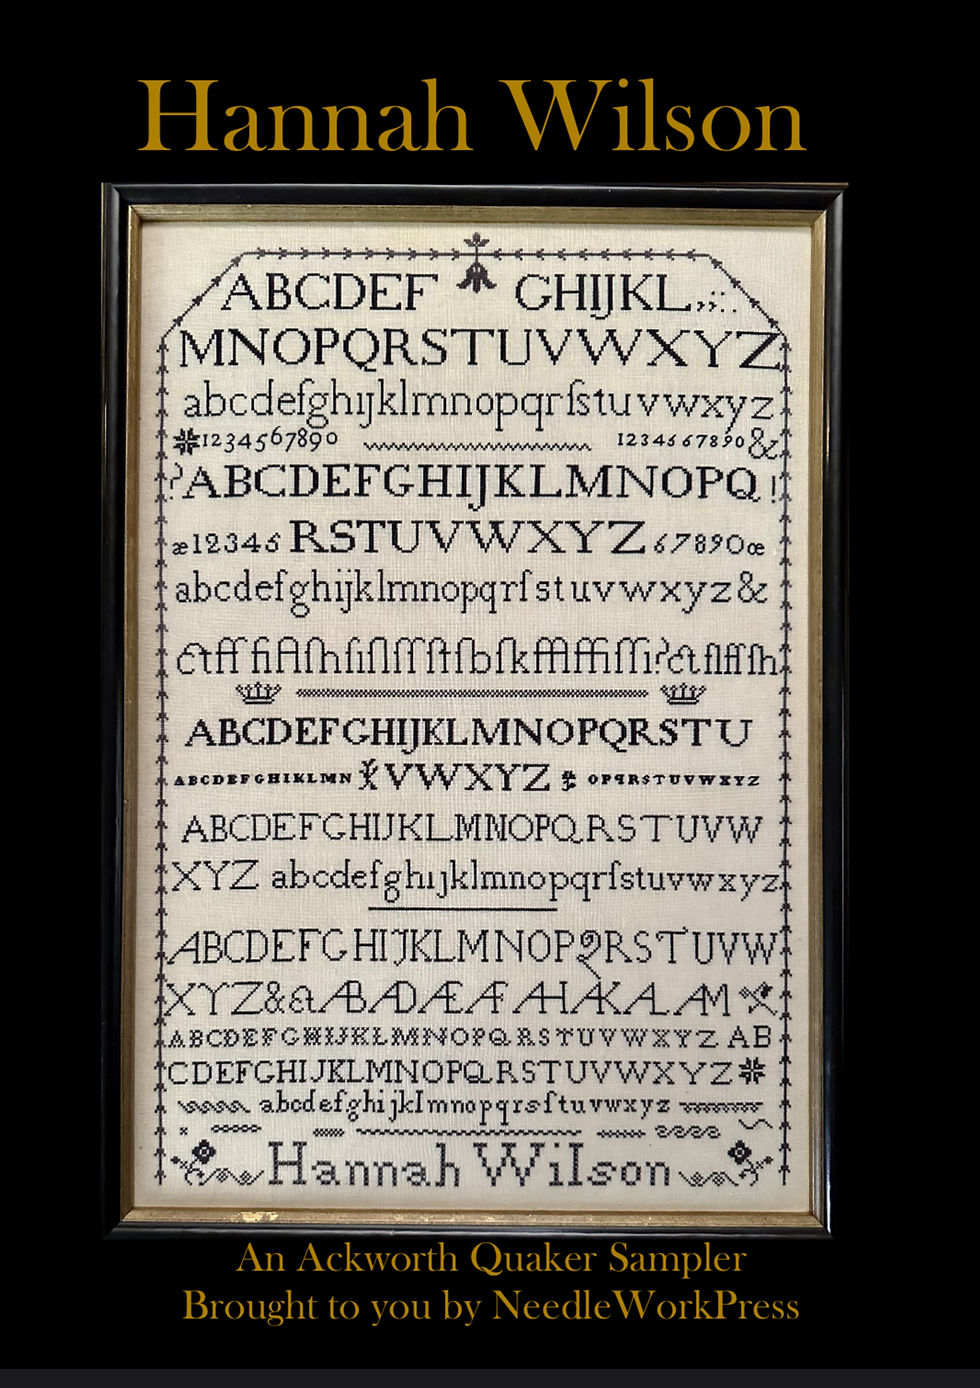 Hannah Wilson
ABCDEF GHIJKL,,;:.
MNOPQRSTUVWXYZ
abcdefghıȷklmnopqrſstuvwxyz
1234567890 1234567890&
?ABCDEFGHIJKLMNOPQ!
æ12345 RSTUVWXYZ 67890œ
abcdefghijklmnopqrſstuvwxyz&
ABCDEFGHIJKLMNOPQRSTU
ABCDEFGHIKLMN VWXYZ OPQRSTUVWXYZ
ABCDEFGHIJKLMNOPQRSTUVW
XYZ abcdefghıȷklmnopqrſstuvwxyz
ABCDEFGHIJKLMNOPQRSTUVW
XYZ&
ABCDEFGHIJKLMNOPQRSTUVWXYZ AB
CDEFGHIJKLMNOPQRSTUVWXYZ
abcdefghijklmnopqrsſtuvwxyz
Hannah Wilson
An Ackworth Quaker Sampler
Brought to you by NeedleWorkPress